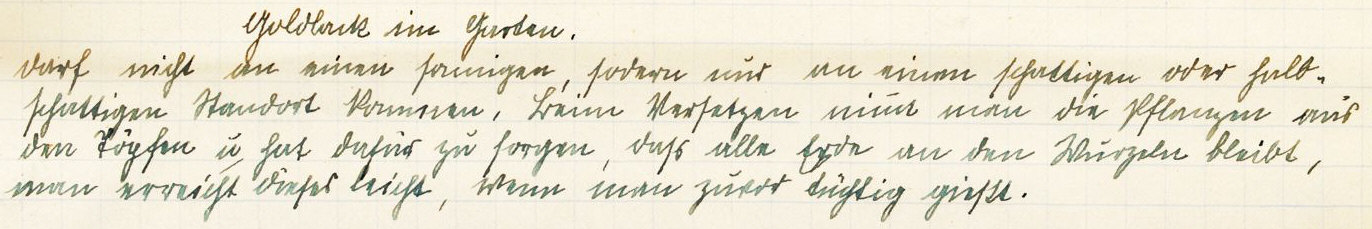 Goldlack im Garten.
darf nicht an einen sonnigen, sodern nur an einen schattigen oder halb-
schattigen Standort kommen. Beim Versetzen nimt man die Pflanzen aus
den Töpfen u hat dafür zu sorgen, dass alle Erde an den Wurzeln bleibt,
man erreicht dieses leicht, wenn man zuvor tüchtig gießt.